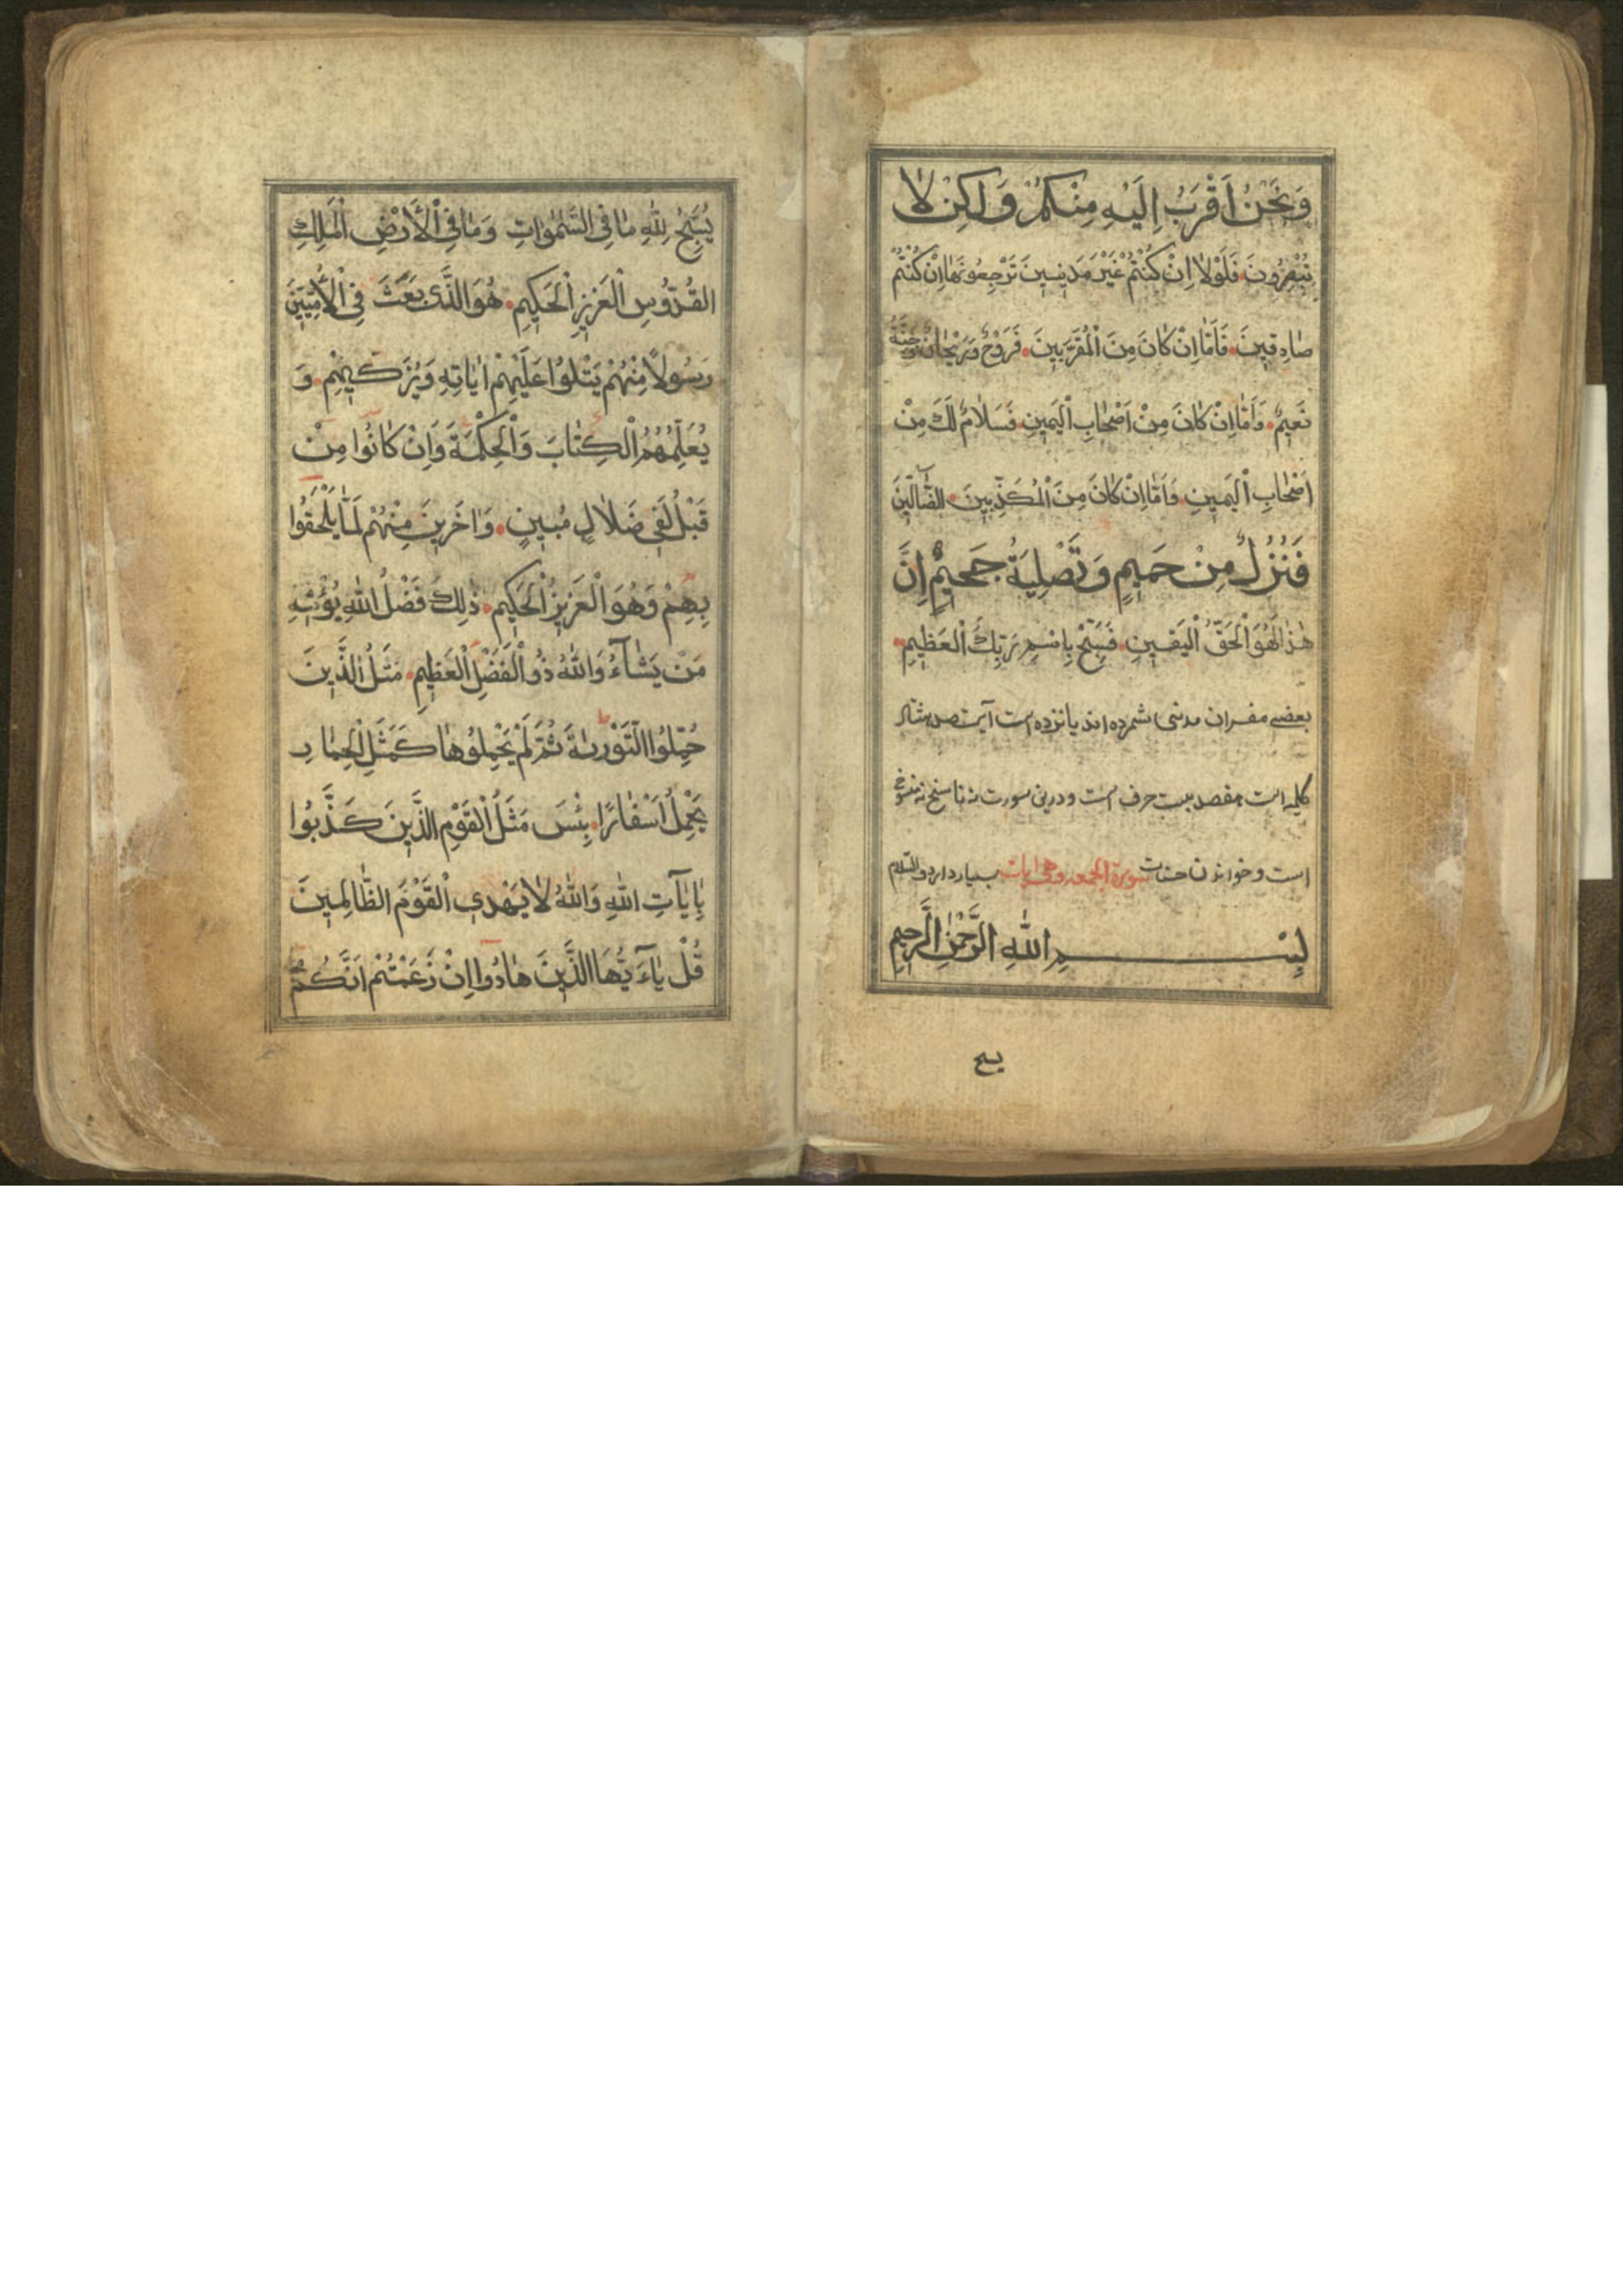 وَنَحْنُ اَقْرَبُ اِلَيْهِ مِنْكُمْ وَلٰكِنْ لَا
تُبْصِرُونَ فَلَوْلَا اِنْ كُنْتُمْ غَيْرَ مَدِينِينَ تَرْجِعُونَهَا اِنْ كُنْتُمْ
صَادِقِينَ فَاَمَّا اِنْ كَانَ مِنَ الْمُقَرَّبِينَ فَرَوْحٌ وَرَيْحَانٌ وَجَنَّةُ
نَعِيمٍ وَاَمَّا اِنْ كَانَ مِنْ اَصْحَابِ الْيَمِينِ فَسَلَامٌ لَكَ مِنْ
اَصْحَابِ الْيَمِينِ وَاَمَّا اِنْ كَانَ مِنَ الْمُكَذِّبِينَ الضَّالِّينَ
فَنُزُلٌ مِنْ حَمِيمٍ وَتَصْلِيَةُ جَحِيمٍ اِنَّ
هٰذَا لَهُوَ الْحَقُّ الْيَقِينِ فَسَبِّحْ بِاسْمِ رَبِّكَ الْعَظِيمِ
بعضے مفسران مدنی شمرده اند یانزده است آیت صد هشتاد
کلمه است هفصد بیست حرف است و درین سورت نه ناسخ نه منسوخ
است و خواندن حسنات سورة الجمعه بسیار دارد والسلام
بِسْمِ اللّٰهِ الرَّحْمٰنِ الرَّحِيمِ
يسبح
يُسَبِّحُ لِلّٰهِ مَا فِى السَّمٰوَاتِ وَمَا فِى الْاَرْضِ الْمَلِكِ
الْقُدُّوسِ الْعَزِيزِ الْحَكِيمِ هُوَ الَّذِى بَعَثَ فِى الْاُمِّيِّينَ
رَسُولًا مِنْهُمْ يَتْلُوا عَلَيْهِمْ اٰيَاتِهِ وَيُزَكِّيهِمْ وَ
يُعَلِّمُهُمُ الْكِتَابَ وَالْحِكْمَةَ وَاِنْ كَانُوا مِنْ
قَبْلُ لَفِى ضَلَالٍ مُبِينٍ وَاٰخَرِينَ مِنْهُمْ لَمَّا يَلْحَقُوا
بِهِمْ وَهُوَ الْعَزِيزُ الْحَكِيمُ ذٰلِكَ فَضْلُ اللّٰهِ يُؤْتِيهِ
مَنْ يَشَآءُ وَاللّٰهُ ذُو الْفَضْلِ الْعَظِيمِ مَثَلُ الَّذِينَ
حُمِّلُوا التَّوْرٰيةَ ثُمَّ لَمْ يَحْمِلُوهَا كَمَثَلِ الْحِمَارِ
يَحْمِلُ اَسْفَارًا بِئْسَ مَثَلُ الْقَوْمِ الَّذِينَ كَذَّبُوا
بِاٰيَاتِ اللّٰهِ وَاللّٰهُ لَا يَهْدِى الْقَوْمَ الظَّالِمِينَ
قُلْ يَآ اَيُّهَا الَّذِينَ هَادُوا اِنْ زَعَمْتُمْ اَنَّكُمْ